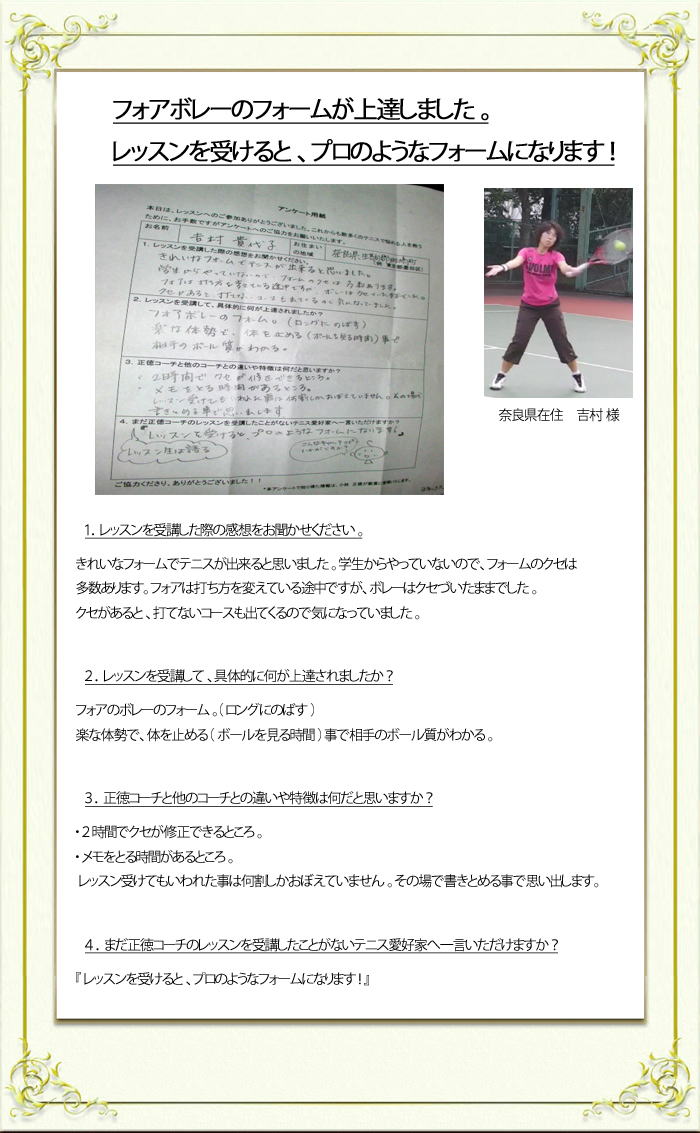 フォアボレーのフォームが上達しました。
レッスンを受けると、プロのようなフォームになります!
アンケート用紙
本日は、レッスンへのご参加ありがとうございました。これからも数多くのテニスで悩める人を救う
ために、お手数ですがアンケートへのご協力をお願いいたします。
お名前 吉村 貴代子 お住まいの地域 奈良県
1. レッスンを受講した際の感想をお聞かせください。
きれいなフォームでテニスが出来ると思いました。
学生からやっていないので、フォームのクセは多数あります。
フォアは打ち方を変えている途中ですが、ボレーはクセづいたままでした。
クセがあると、打てないコースも出てくるので気になっていました。
2. レッスンを受講して、具体的に何が上達されましたか?
フォアボレーのフォーム。(ロングにのばす)
楽な体勢で、体を止める(ボールを見る時間)事で
相手のボール質がわかる。
3. 正徳コーチと他のコーチとの違いや特徴は何だと思いますか?
・2時間でクセが修正できるところ。
・メモをとる時間があるところ。
レッスン受けてもいわれた事は何割しかおぼえていません。その場で
書きとめる事で思い出します
4. まだ正徳コーチのレッスンを受講したことがないテニス愛好家へ一言いただけますか?
『レッスンを受けると、プロのようなフォームになります!』
レッスン生は語る
ご協力くださり、ありがとうございました!!
CPOLMA
奈良県在住 吉村 様
1. レッスンを受講した際の感想をお聞かせください。
きれいなフォームでテニスが出来ると思いました。学生からやっていないので、フォームのクセは
多数あります。フォアは打ち方を変えている途中ですが、ボレーはクセづいたままでした。
クセがあると、打てないコースも出てくるので気になっていました。
2. レッスンを受講して、具体的に何が上達されましたか?
フォアのボレーのフォーム。(ロングにのばす)
楽な体勢で、体を止める(ボールを見る時間)事で相手のボール質がわかる。
3. 正徳コーチと他のコーチとの違いや特徴は何だと思いますか?
・2時間でクセが修正できるところ。
・メモをとる時間があるところ。
レッスン受けてもいわれた事は何割しかおぼえていません。その場で書きとめる事で思い出します。
4. まだ正徳コーチのレッスンを受講したことがないテニス愛好家へ一言いただけますか?
『レッスンを受けると、プロのようなフォームになります!』